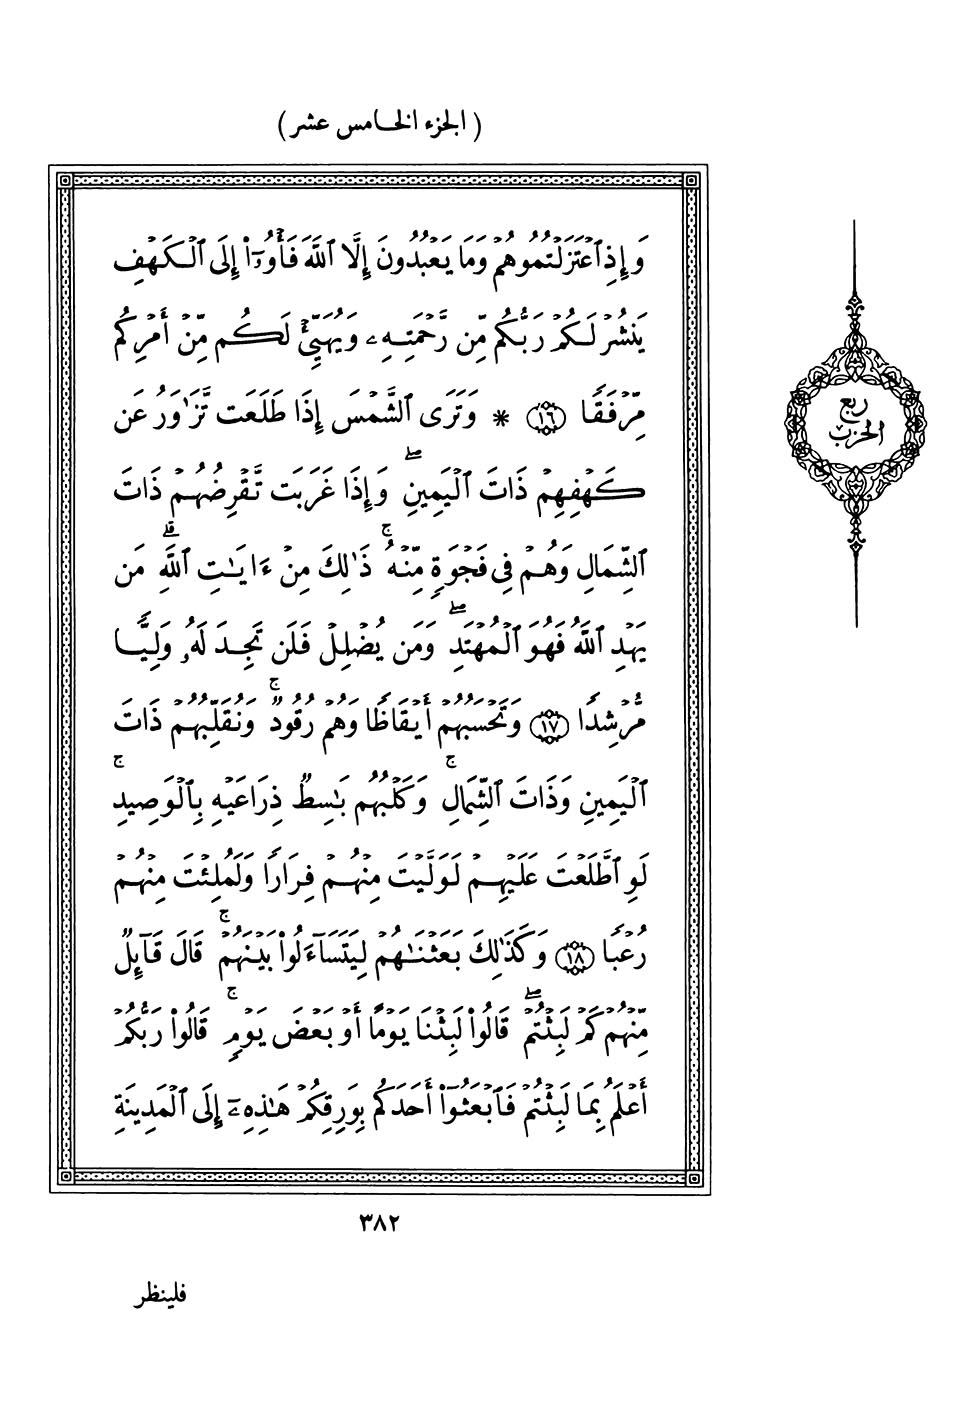 ( الجزء الخامس عشر )
وَإِذِ ٱعْتَزَلْتُمُوهُمْ وَمَا يَعْبُدُونَ إِلَّا ٱللَّهَ فَأْوُۥٓا۟ إِلَى ٱلْكَهْفِ
يَنشُرْ لَكُمْ رَبُّكُم مِّن رَّحْمَتِهِۦ وَيُهَيِّئْ لَكُم مِّنْ أَمْرِكُم
مِّرْفَقًا ١٦ * وَتَرَى ٱلشَّمْسَ إِذَا طَلَعَت تَّزَٰوَرُ عَن
كَهْفِهِمْ ذَاتَ ٱلْيَمِينِۖ وَإِذَا غَرَبَت تَّقْرِضُهُمْ ذَاتَ
ٱلشِّمَالِ وَهُمْ فِى فَجْوَةٍ مِّنْهُۚ ذَٰلِكَ مِنْ ءَايَٰتِ ٱللَّهِۗ مَن
يَهْدِ ٱللَّهُ فَهُوَ ٱلْمُهْتَدِۖ وَمَن يُضْلِلْ فَلَن تَجِدَ لَهُۥ وَلِيًّا
مُّرْشِدًا ١٧ وَتَحْسَبُهُمْ أَيْقَاظًا وَهُمْ رُقُودٌۚ وَنُقَلِّبُهُمْ ذَاتَ
ٱلْيَمِينِ وَذَاتَ ٱلشِّمَالِۚ وَكَلْبُهُم بَٰسِطٌ ذِرَاعَيْهِ بِٱلْوَصِيدِۚ
لَوِ ٱطَّلَعْتَ عَلَيْهِمْ لَوَلَّيْتَ مِنْهُمْ فِرَارًا وَلَمُلِئْتَ مِنْهُمْ
رُعْبًا ١٨ وَكَذَٰلِكَ بَعَثْنَٰهُمْ لِيَتَسَآءَلُوا۟ بَيْنَهُمْۚ قَالَ قَآئِلٌ
مِّنْهُمْ كَمْ لَبِثْتُمْۖ قَالُوا۟ لَبِثْنَا يَوْمًا أَوْ بَعْضَ يَوْمٍۚ قَالُوا۟ رَبُّكُمْ
أَعْلَمُ بِمَا لَبِثْتُمْ فَٱبْعَثُوٓا۟ أَحَدَكُم بِوَرِقِكُمْ هَٰذِهِۦٓ إِلَى ٱلْمَدِينَةِ
ربع
الحزب
٣٨٢
فلينظر